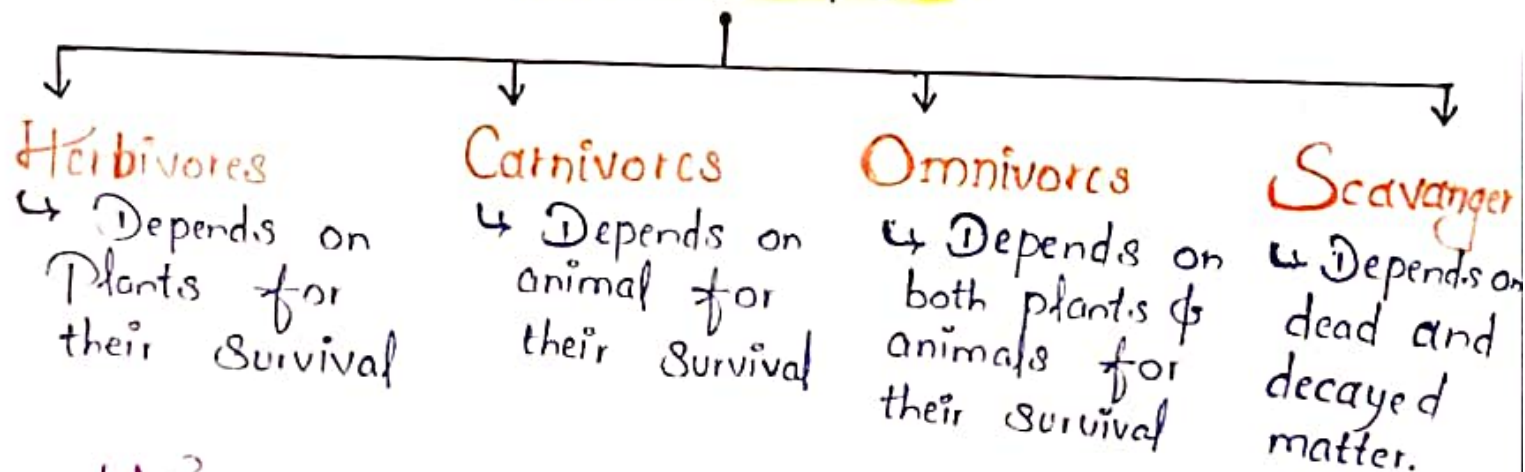 Herbivores
↳ Depends on
Plants for
their Survival
Carnivores
↳ Depends on
animal for
their Survival
Omnivores
↳ Depends on
both plants &
animals for
their survival
Scavanger
↳ Depends on
dead and
decayed
matter.